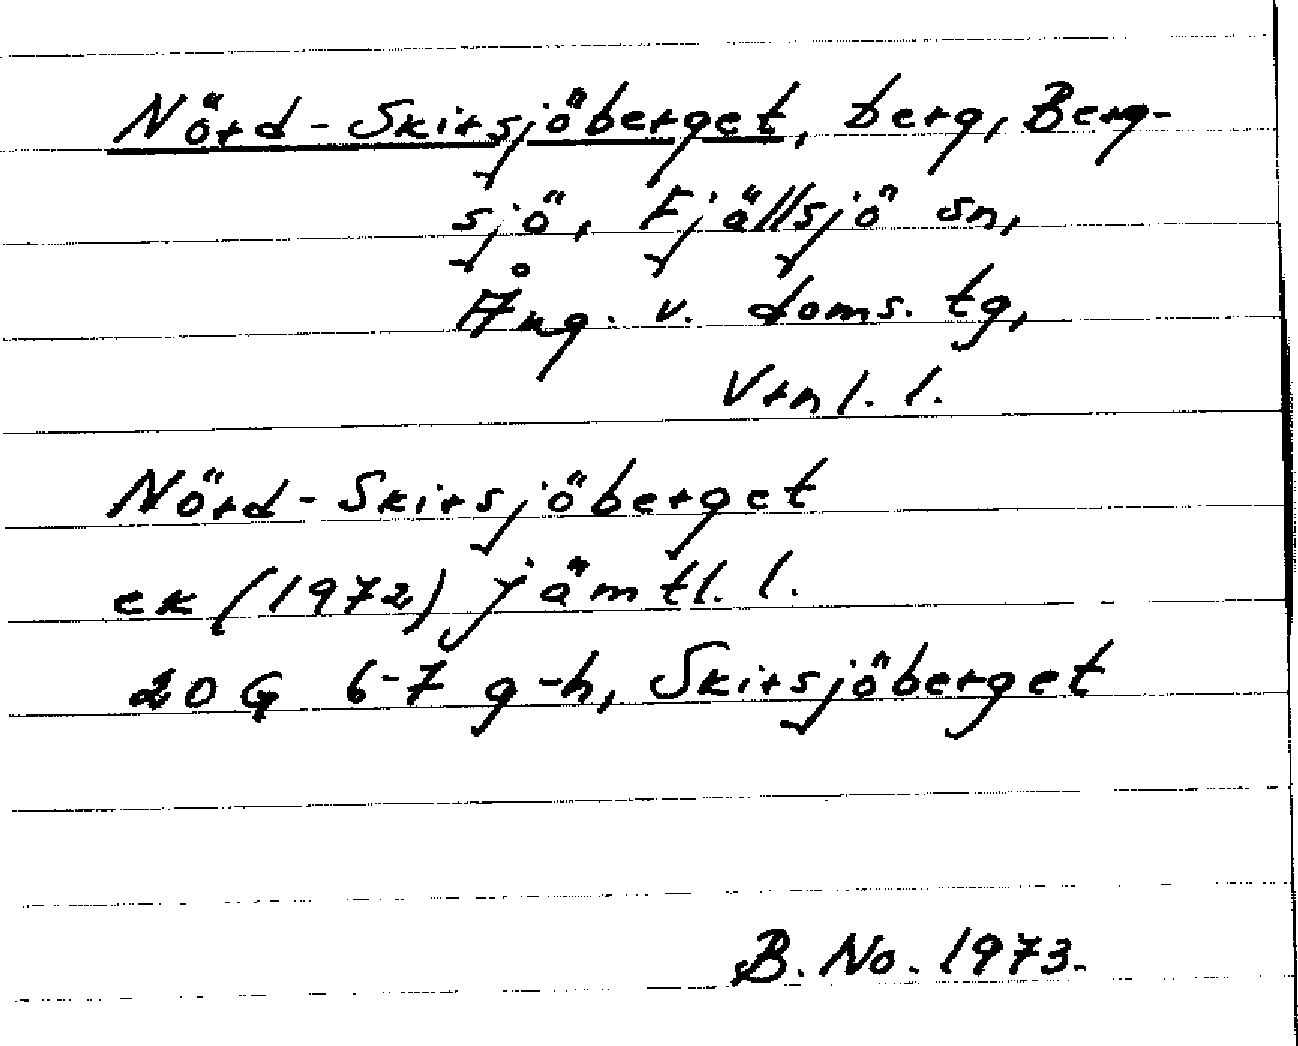 Nörd-Skirsjöberget, berg, Berg-
sjö, Fjällsjö sn,
Ång. v. doms. tg,
Vrnl. l.
Nörd-Skirsjöberget
ek (1972) jämtl. l.
20 G 6-7 g-h, Skirsjöberget
B. No. 1973.